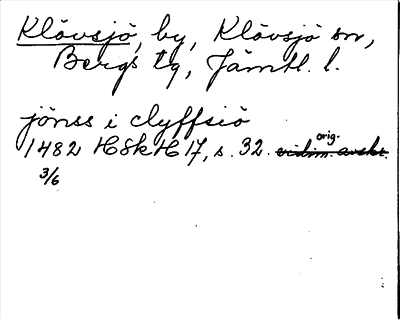 Klövsjö, by, Klövsjö sn,
Bergs tg, Jämtl. l.
jönss i clyffsiö
1482 HSkH 17, s. 32. orig. vidim. avskr.
3/6